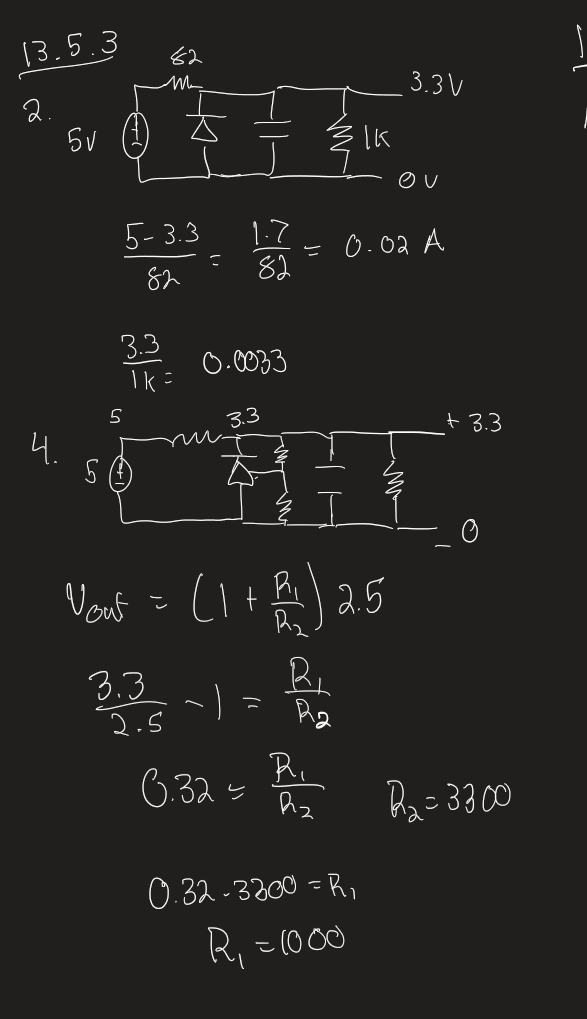 13.5.3
82
2.
3.3V
5v
1K
0V
5-3.3/82 = 1.7/82 = 0.02 A
3.3/1k = 0.0033
5 3.3 + 3.3
4.
5
- 0
Vout = (1 + R1/R2) 2.5
3.3/2.5 - 1 = R1/R2
0.32 = R1/R2 R2 = 3300
0.32 - 3300 = R1
R1 = 1000